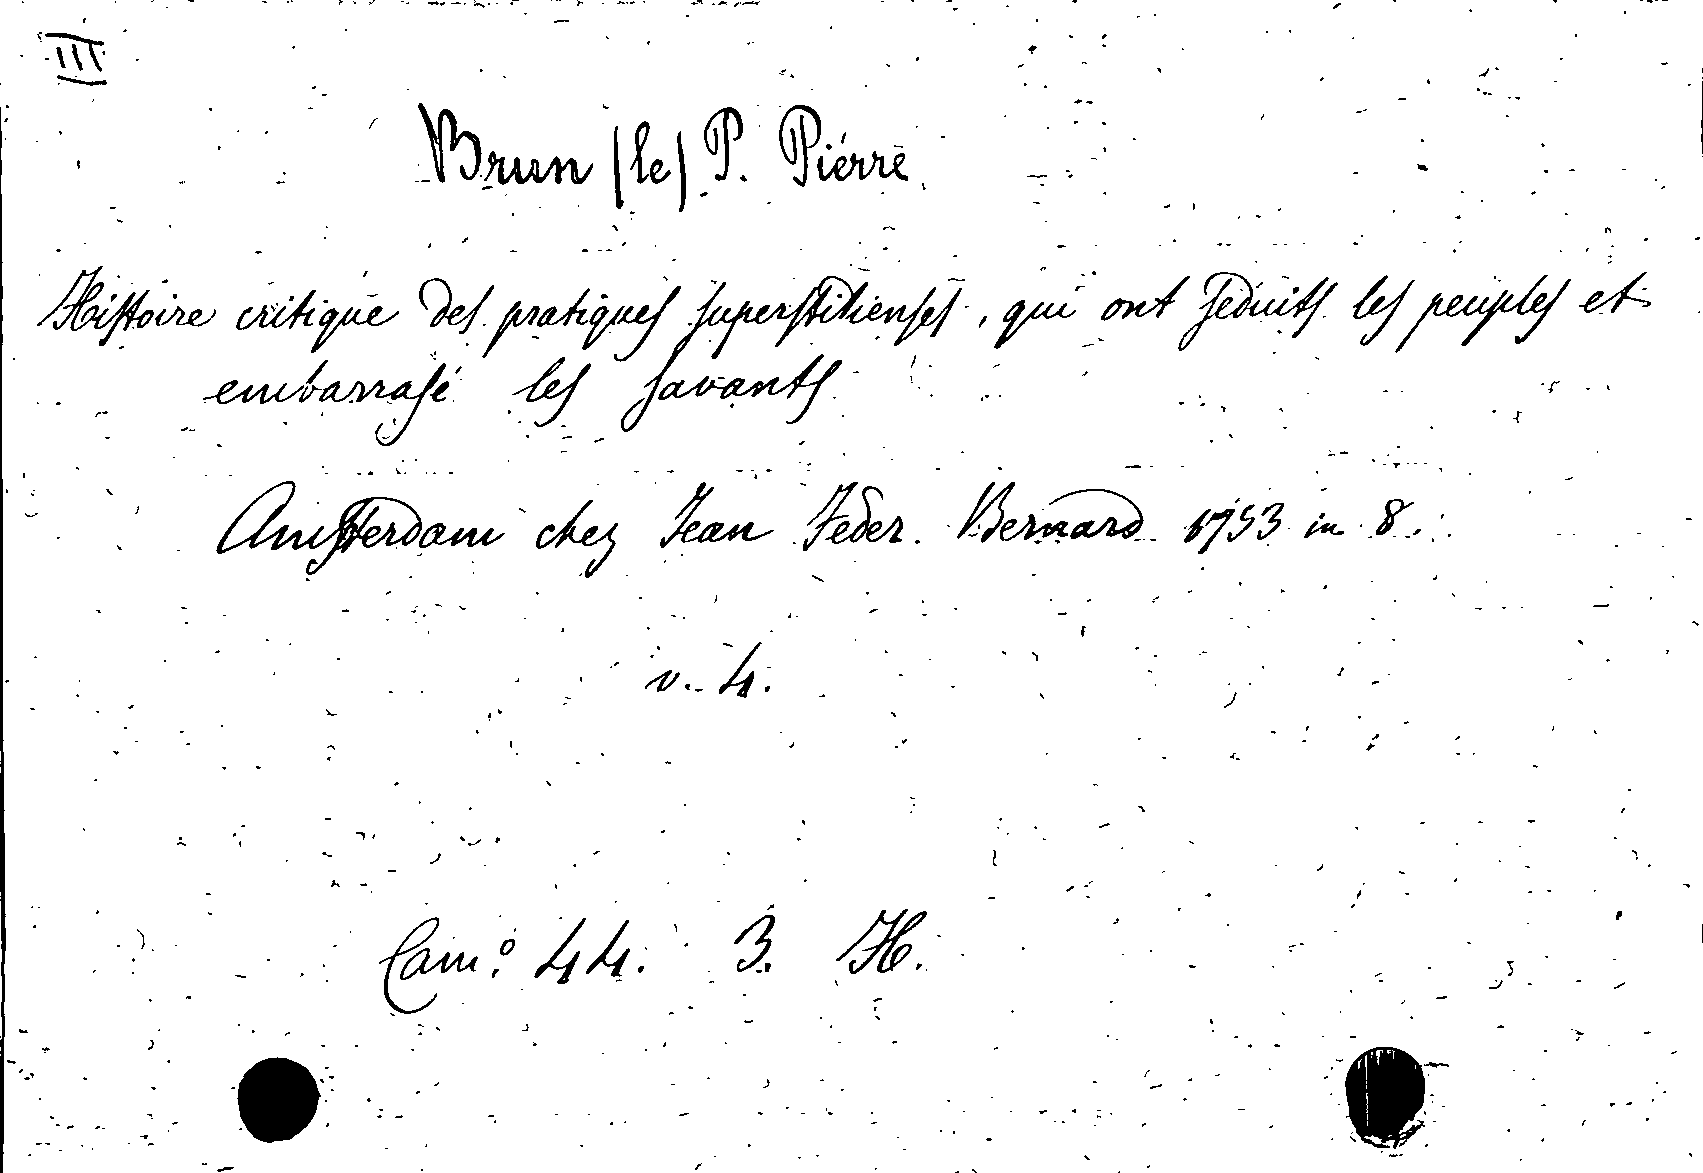 III
Brun /le/ P. Piérre
Histoire critique des pratiques superstitienses, qui ont seduits les peuples et
embarrasé les savants
Amsterdam chez Jean Feder. Bernard 1753 in 8.
v. 4.
Cam.º 44. 3. H.